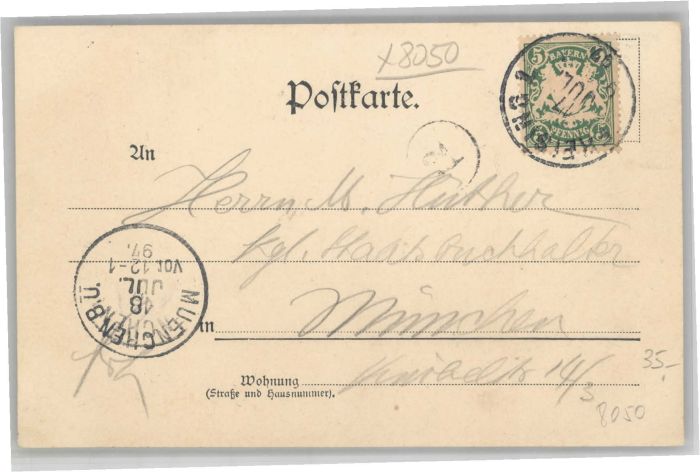 x8050
Postkarte.
5 BAYERN
PFENNIG
FREISING 2
17 JUL
An
Herrn M. Hüther
kgl. Staatsbuchhalter
in München
Wohnung 14/3
(Straße und Hausnummer).
MUENCHEN.B.U.
18
JUL.
Vor.12-1
97.
35.-
8050